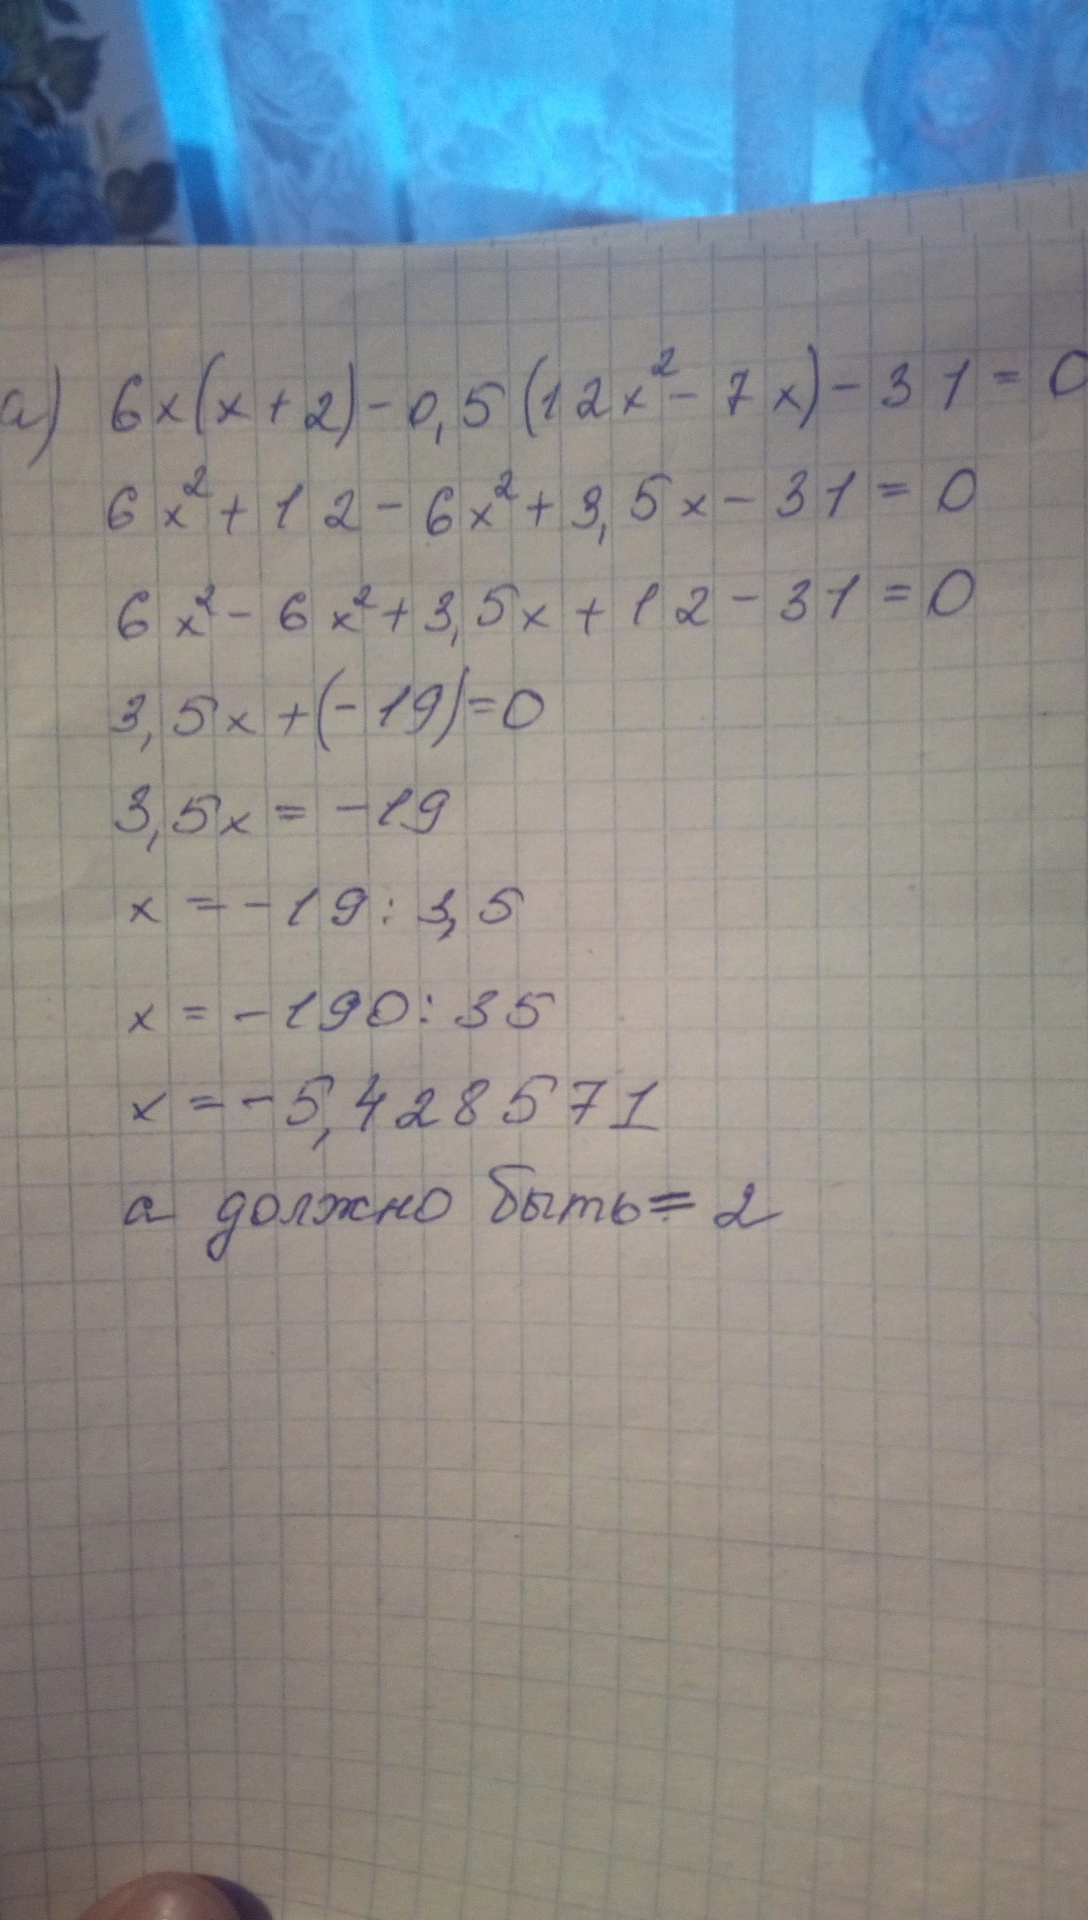 а) 6x(x+2)-0,5(12x²-7x)-31=0
6x²+12-6x²+3,5x-31=0
6x²-6x²+3,5x+12-31=0
3,5x+(-19)=0
3,5x=-19
x=-19:3,5
x=-190:35
x=-5,428571
а должно быть=2